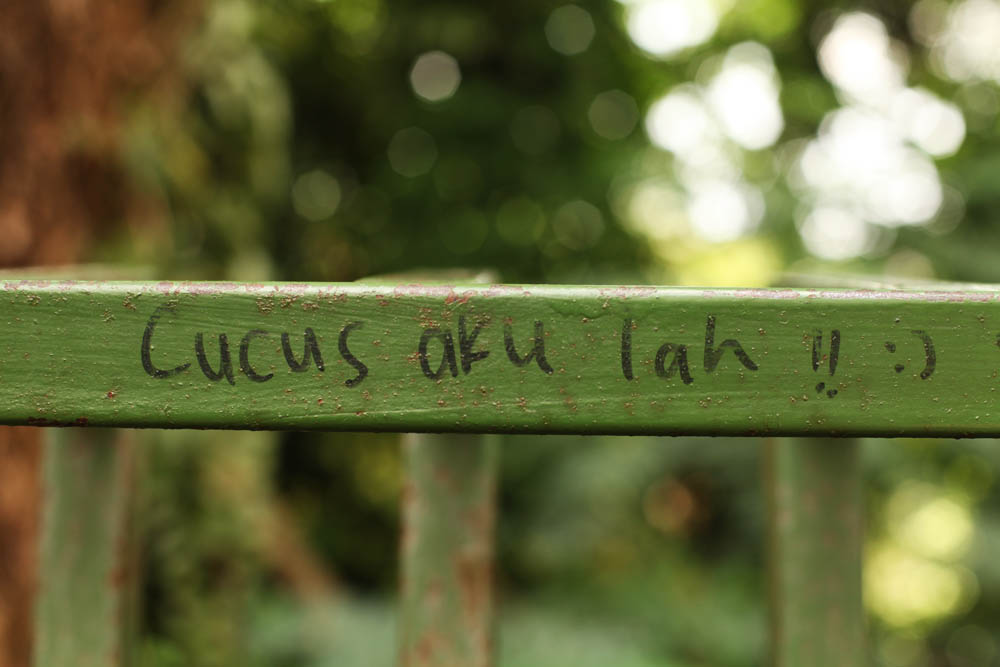 Cucus aku lah !! :)